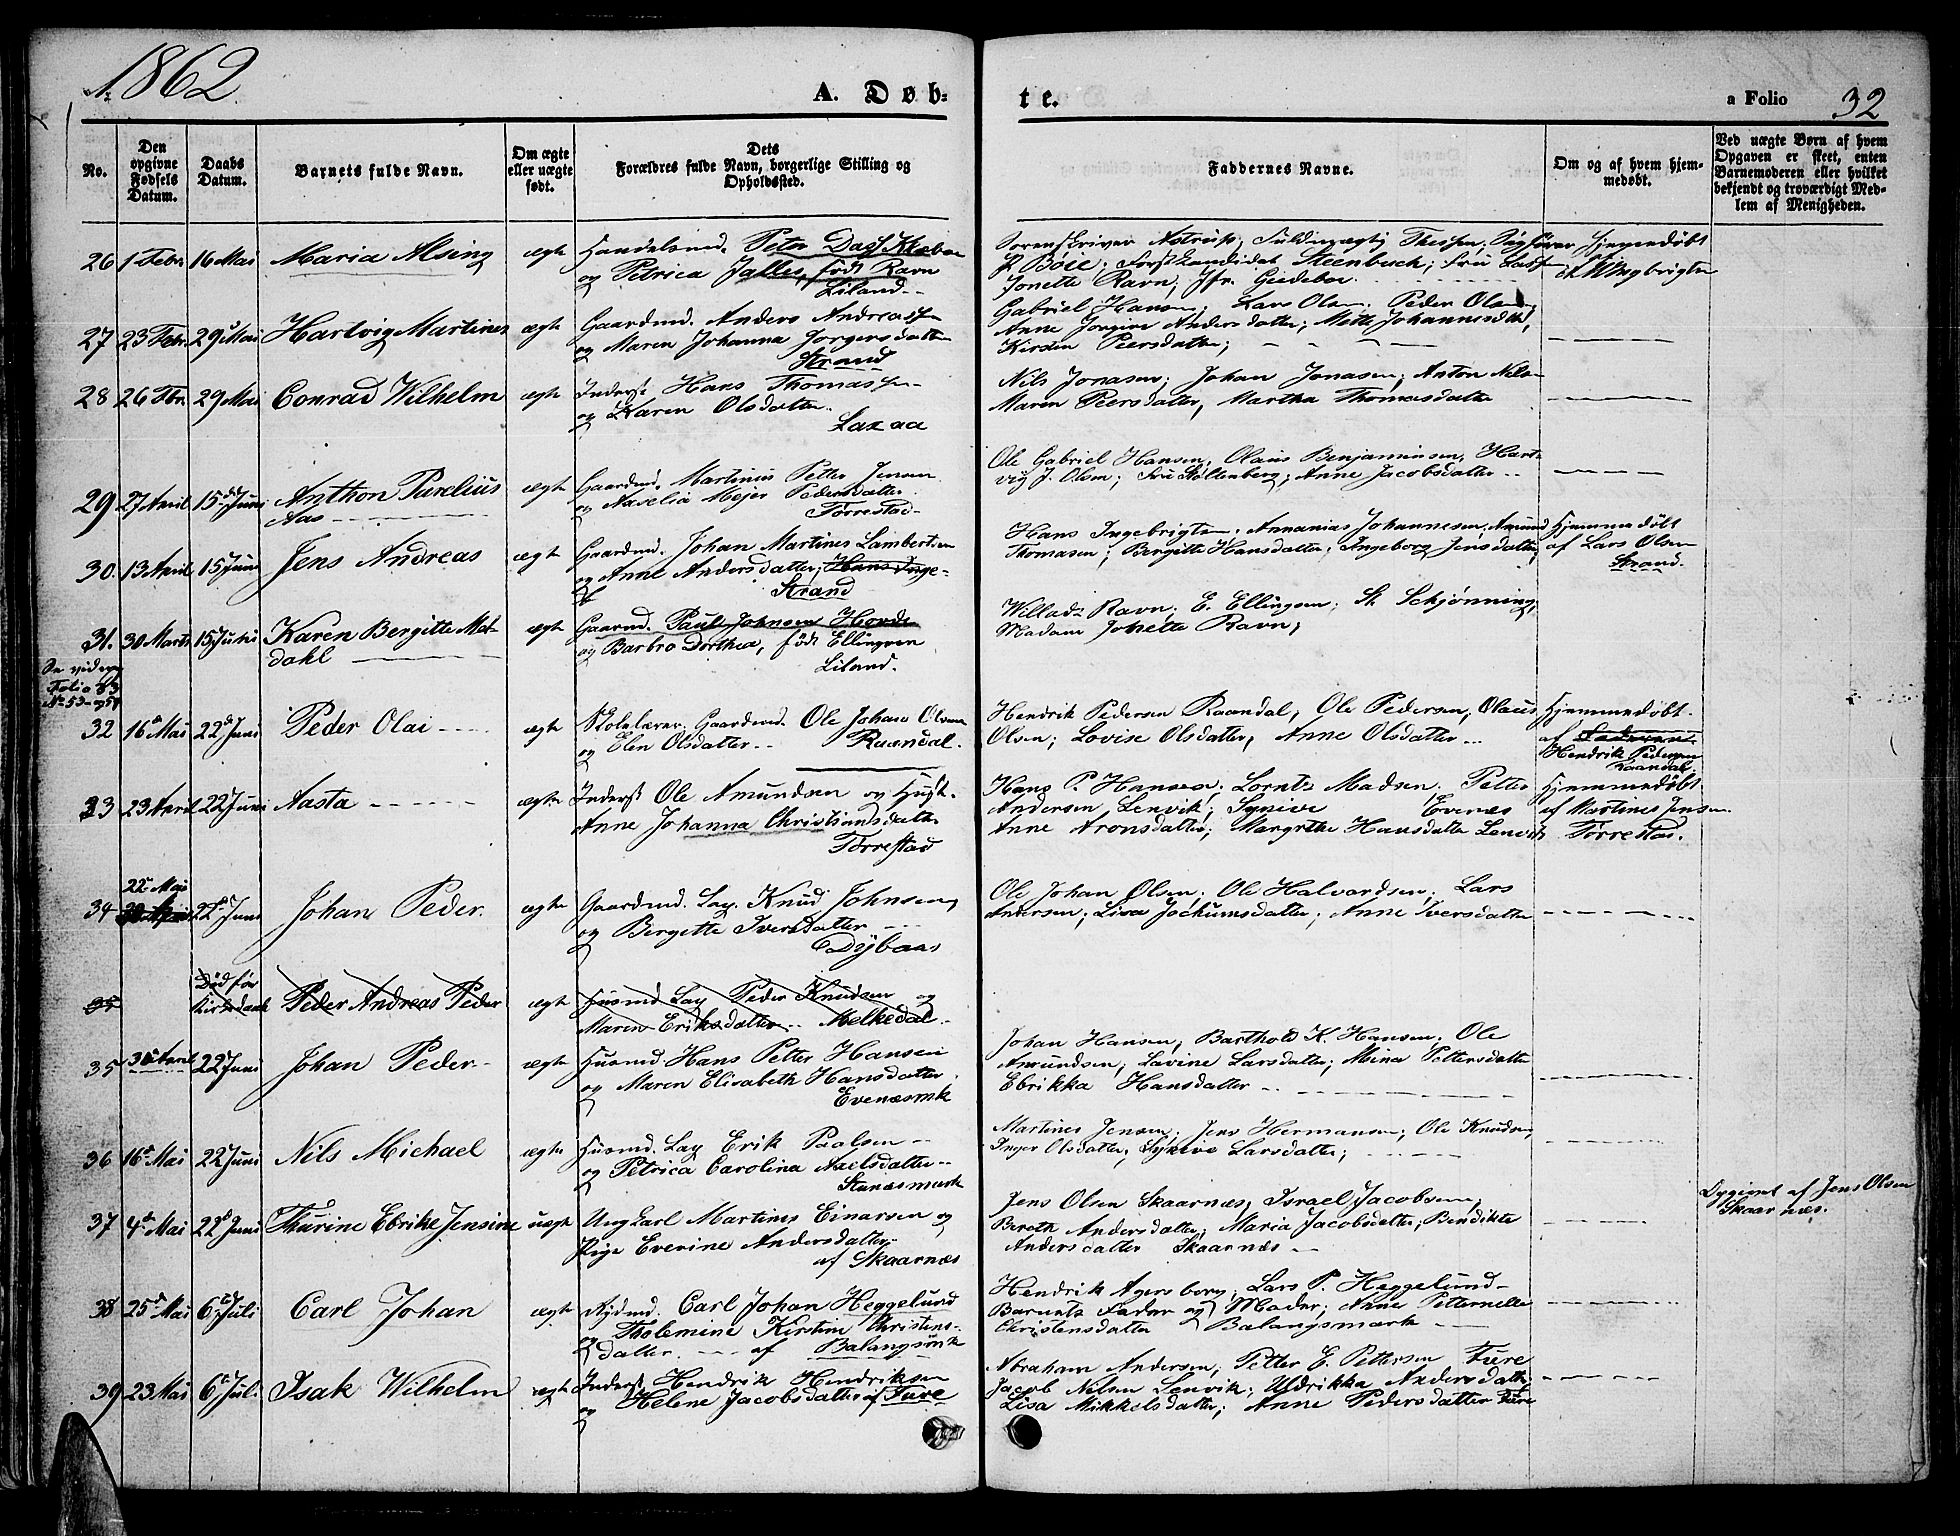 Ao 1862.
A. Døb=
te.
a Folio 32
No.
Den opgivne Fødsels Datum.
Daabs Datum.
Barnets fulde Navn.
Om ægte eller uægte født.
Dets Forældres fulde Navn, borgerlige Stilling og Opholdssted.
Faddernes Navne.
Om og af hvem hjemmedøbt.
Ved uægte Børn af hvem Opgaven er skeet, enten Barnemoderen eller hvilket bekjendt og troværdigt Medlem af Menigheden.
26 1 Febr. 16 Mai Maria Alsing ægte Handelsmd. Peter Dass Klæboe
og Petrica Jalles, født Ravn
Liland
Sorenskriver Astrup; Fuldmægtig
P. Bøie; Forstkandidat Steenbuch; Fru
Jonette Ravn, Jfr. Giedeboe
Hjemmedøbt
27 23 Febr. 29 Mai Hartvig Martines ægte Gaardmd. Anders Andreassen
og Maren Johanna Jørgensdatter
Strand
Gabriel Hansen; Lars Olsen; Peder Olsen
Anne Jørgine Andersdatter; Mette Johannesdtr;
Kirsten Peersdatter;
28 26 Fbr. 29 Mai Conrad Wilhelm ægte Inderst Hans Thomassen
og Karen Olsdatter.
Laxaa
Nils Jonasen; Johan Jonasen; Anton Nils
Maren Peersdatter, Martha Thomasdatter
29 27 April 15de Juni Anthon Parelius
Aas
ægte Gaardmd. Martinus Petter Jensen
og Axelia Mejer Pedersdatter
Torrestad
Ole Gabriel Hansen, Olaus Benjaminsen, Hart-
vig J. Olsen; Fru Stoltenberg; Anne Jacobsdatter
30. 13 April 15 Juni Jens Andreas ægte Gaardmd. Johan Martines Lambertsen
og Anne Andersdatter, Hans Inge-
Strand
Hans Ingebrigtsen. Annanias Johannesen, Amund
Thomasen; Bergitte Hansdatter; Ingeborg Jensdatter
Hjemmedøbt
af Lars Olsen
Strand.
31. 30 Marts 15 Juni Karen Bergitte Mel-
dahl
ægte Gaarmd. Paul Johnsen Horde
og Barbro Dorthea, født Ellingsen
Liland.
Willads Ravn; E. Ellingsen; St. Schjønning,
Madam Jonette Ravn;
Se videre
Folio 33
No 53 og 54
32 16de Mai 22de Juni Peder Olai ægte Skolelærer, Gaardmd. Ole Johan Olsen
og Elen Olsdatter Raandal.
Hendrik Pedersen Raandal; Ole Pedersen, Olaus
Olsen; Lovise Olsdatter, Anne Olsdatter
Hjemmedøbt
af Faderen
Hendrik Pedersen
Raandal
33 23 April 22 Juni Aasta ægte Inderst Ole Amundsen og Hust.
Anne Johanna Christiansdatter
Torrestad
Hans P. Hansen; Lorntz Madsen; Petter
Andersen Lenvik; Synive Evenæs
Anne Aronsdatter; Margrethe Hansdatter Lenvik
Hjemmedøbt
af Martines Jensen
Torrestad.
34 22 Mai 22de Juni Johan Peder. ægte Gaardmd. Lap. Knud Johnsen
og Bergette Iversdatter
Dybaas
Ole Johan Olsen; Ole Halvardsen; Lars
Andersen; Lisa Jochumsdatter; Anne Iversdatter
35 Død før
Kirkedaab
Peder Andreas Peder ægte Husmd. Lap Peder Knudsen og
Maren Eriksdatter Melkedal
35 30 April 22 Juni Johan Peder ægte Husmd. Hans Petter Hansen
og Maren Elisabeth Hansdatter
Evenæsmk
Johan Hansen; Barthold K. Hansen; Ole
Amundsen; Lavine Larsdatter; Mina Pettersdatter
Ebrikka Hansdatter
36 16de Mai 22 Juni Nils Michael ægte Husmd. Lap Erik Paalsen
og Petrica Carolina Nielsdatter
Stunæsmark
Martines Jensen; Jens Hermansen; Ole Knudsen
Inger Olsdatter, Synive Larsdatter;
37 4de Mai 22de Juni Thurine Ebrike Jensine uægt Ungkarl Martines Einarsen og
Pige Everine Andersdatter
af Skaarnæs
Jens Olsen Skaarnæs, Israel Jacobsen;
Bereth Andersdatter; Maria Jacobsdatter; Bendikte
Andersdatter Skaarnæs
Opgivet af Jens Olsen
Skaarnæs.
38 25de Mai 6te Juli Carl Johan ægte Rydmd. Carl Johan Heggelund
og Tholemine Kirstine Christens-
datter af Balangsmk
Hendrik Agersborg; Lars P. Heggelund
Barnets Fader og Moder; Anne Petternelle
Christensdatter Balangsmark
39 23 Mai 6te Juli Isak Wilhelm ægt Inderst Hendrik Hendriksen
og Helene Jacobsdatter af Ture
Abraham Andersen; Petter E. Pettersen Ture
Jacob Nilsen Lenvik; Uldrikka Andersdatter
Lisa Mikkelsdatter; Anne Pedersdatter Ture